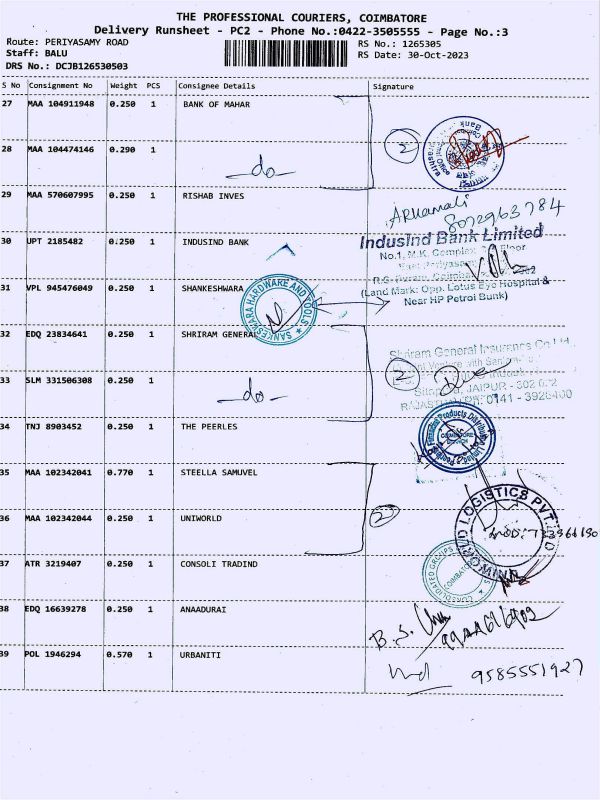 THE PROFESSIONAL COURIERS, COIMBATORE
Delivery Runsheet - PC2 - Phone No.:0422-3505555 - Page No.:3
Route: PERIYASAMY ROAD
Staff: BALU
DRS No.: DCJB126530503
RS No.: 1265305
RS Date: 30-Oct-2023
S No Consignment No Weight PCS Consignee Details Signature
27 MAA 104911948 0.250 1 BANK OF MAHAR
28 MAA 104474146 0.290 1 -do- 2
29 MAA 570607995 0.250 1 RISHAB INVES
8072963784
30 UPT 2185482 0.250 1 INDUSIND BANK
IndusInd Bank Limited
No.1, M.K. Complex, Floor
(Land Mark: Opp. Lotus Eye Hospital &
Near HP Petrol Bunk)
31 VPL 945476049 0.250 1 SHANKESHWARA
SANKESWARA HARDWARE AND TOOLS
32 EDQ 23834641 0.250 1 SHRIRAM GENERAL
Shriram General Insurance Co Ltd.
33 SLM 331506308 0.250 1 -do- 2
JAIPUR - 302 022
0141 - 3926400
34 TNJ 8903452 0.250 1 THE PEERLES
COIMBATORE
35 MAA 102342041 0.770 1 STEELLA SAMUVEL
36 MAA 102342044 0.250 1 UNIWORLD 2
UNIWORLD LOGISTICS PVT LTD
37 ATR 3219407 0.250 1 CONSOLI TRADIND
38 EDQ 16639278 0.250 1 ANAADURAI
B. S.
39 POL 1946294 0.570 1 URBANITI
9585551927